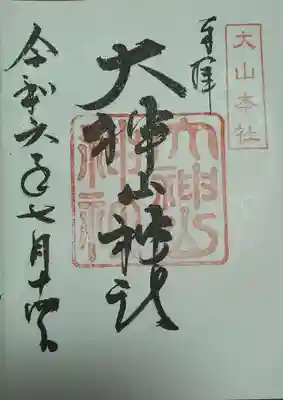 大山本社
奉拝
大神山神社
大神山神社
令和六年七月十四日